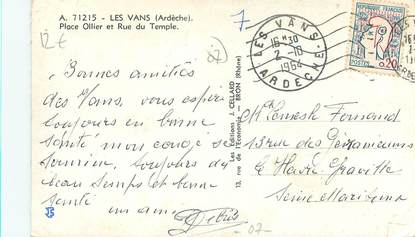 A. 71215 - LES VANS (Ardèche).
Place Ollier et Rue du Temple.
7
LES VANS
16 H 30
2-10
1964
ARDECHE
POSTES
0,20
Les Editions J. CELLARD
13, rue de l'Economie - BRON (Rhône)
Bonnes amitiés
des Vans, vous espère
toujours en bonne
santé mon congé se
termine, toujours du
beau temps et bonne
santé
un ami
Fernand
13 rue des
Le Havre Graville
Seine Maritime
-07-